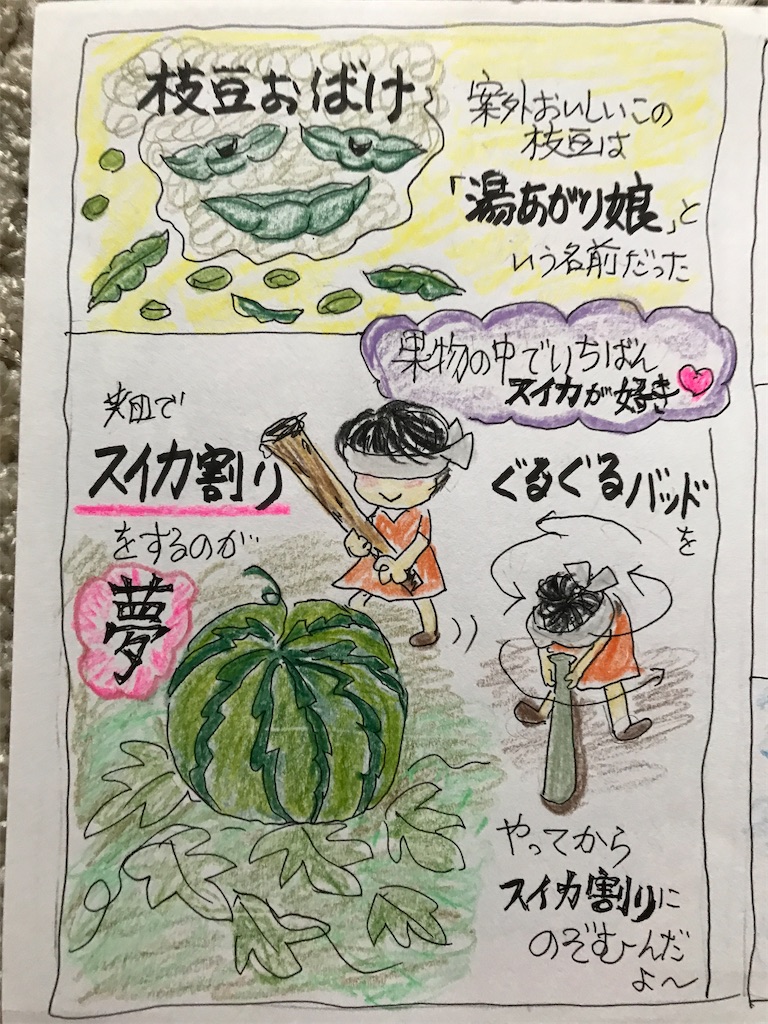 枝豆おばけ
案外おいしいこの
枝豆は
「湯あがり娘」と
いう名前だった
果物の中でいちばん
スイカが好き
で
スイカ割り
をするのが
夢
ぐるぐるバッド
を
やってから
スイカ割りに
のぞむーんだ
よ〜